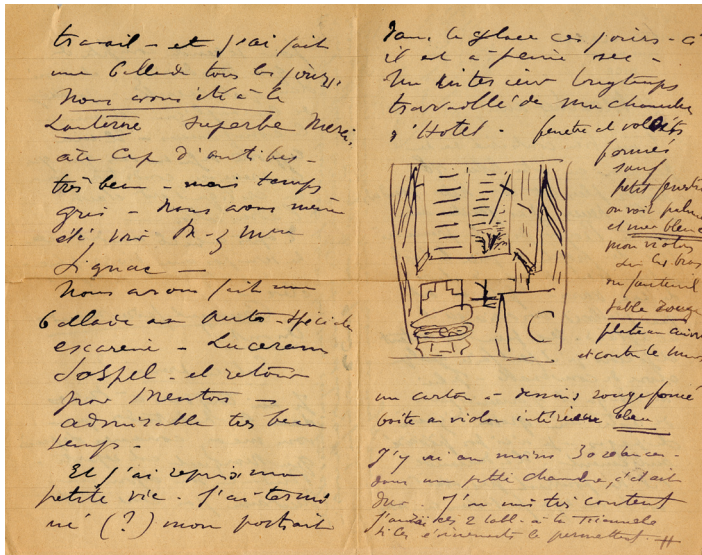 travail - et j'ai fait
une ballade tous les jours,
nous avons été à la
Lanterne superbe Merci,
au Cap d'antibes -
très beau - mais temps
gris - Nous avons même
été voir M. & Mme
Signac -
Nous avons fait une
ballade en auto -
escarene - Luceram
Sospel - et retour
par Menton -
admirable tres beau
temps -
Et j'ai repris ma
petite vie. J'ai termi
né (?) mon portrait
dans la glace ces jours -
il est à peine sec -
Un interieur longtemps
travaillé de ma chambre
d'Hotel - fenetre et volets
fermés
sauf
petit
on voit palmier
et mer bleue
mon violon
sur les bras
du fauteuil
table rouge
plateau
et contre le mur
un carton à dessins rouge foncé
boite a violon intérieur bleu
J'y ai au moins 30 séances -
dans une petite chambre, c'était
dur. J'en suis très content
J'aurai ces 2 tabl. à la Triennale
si les evenements le permettent.